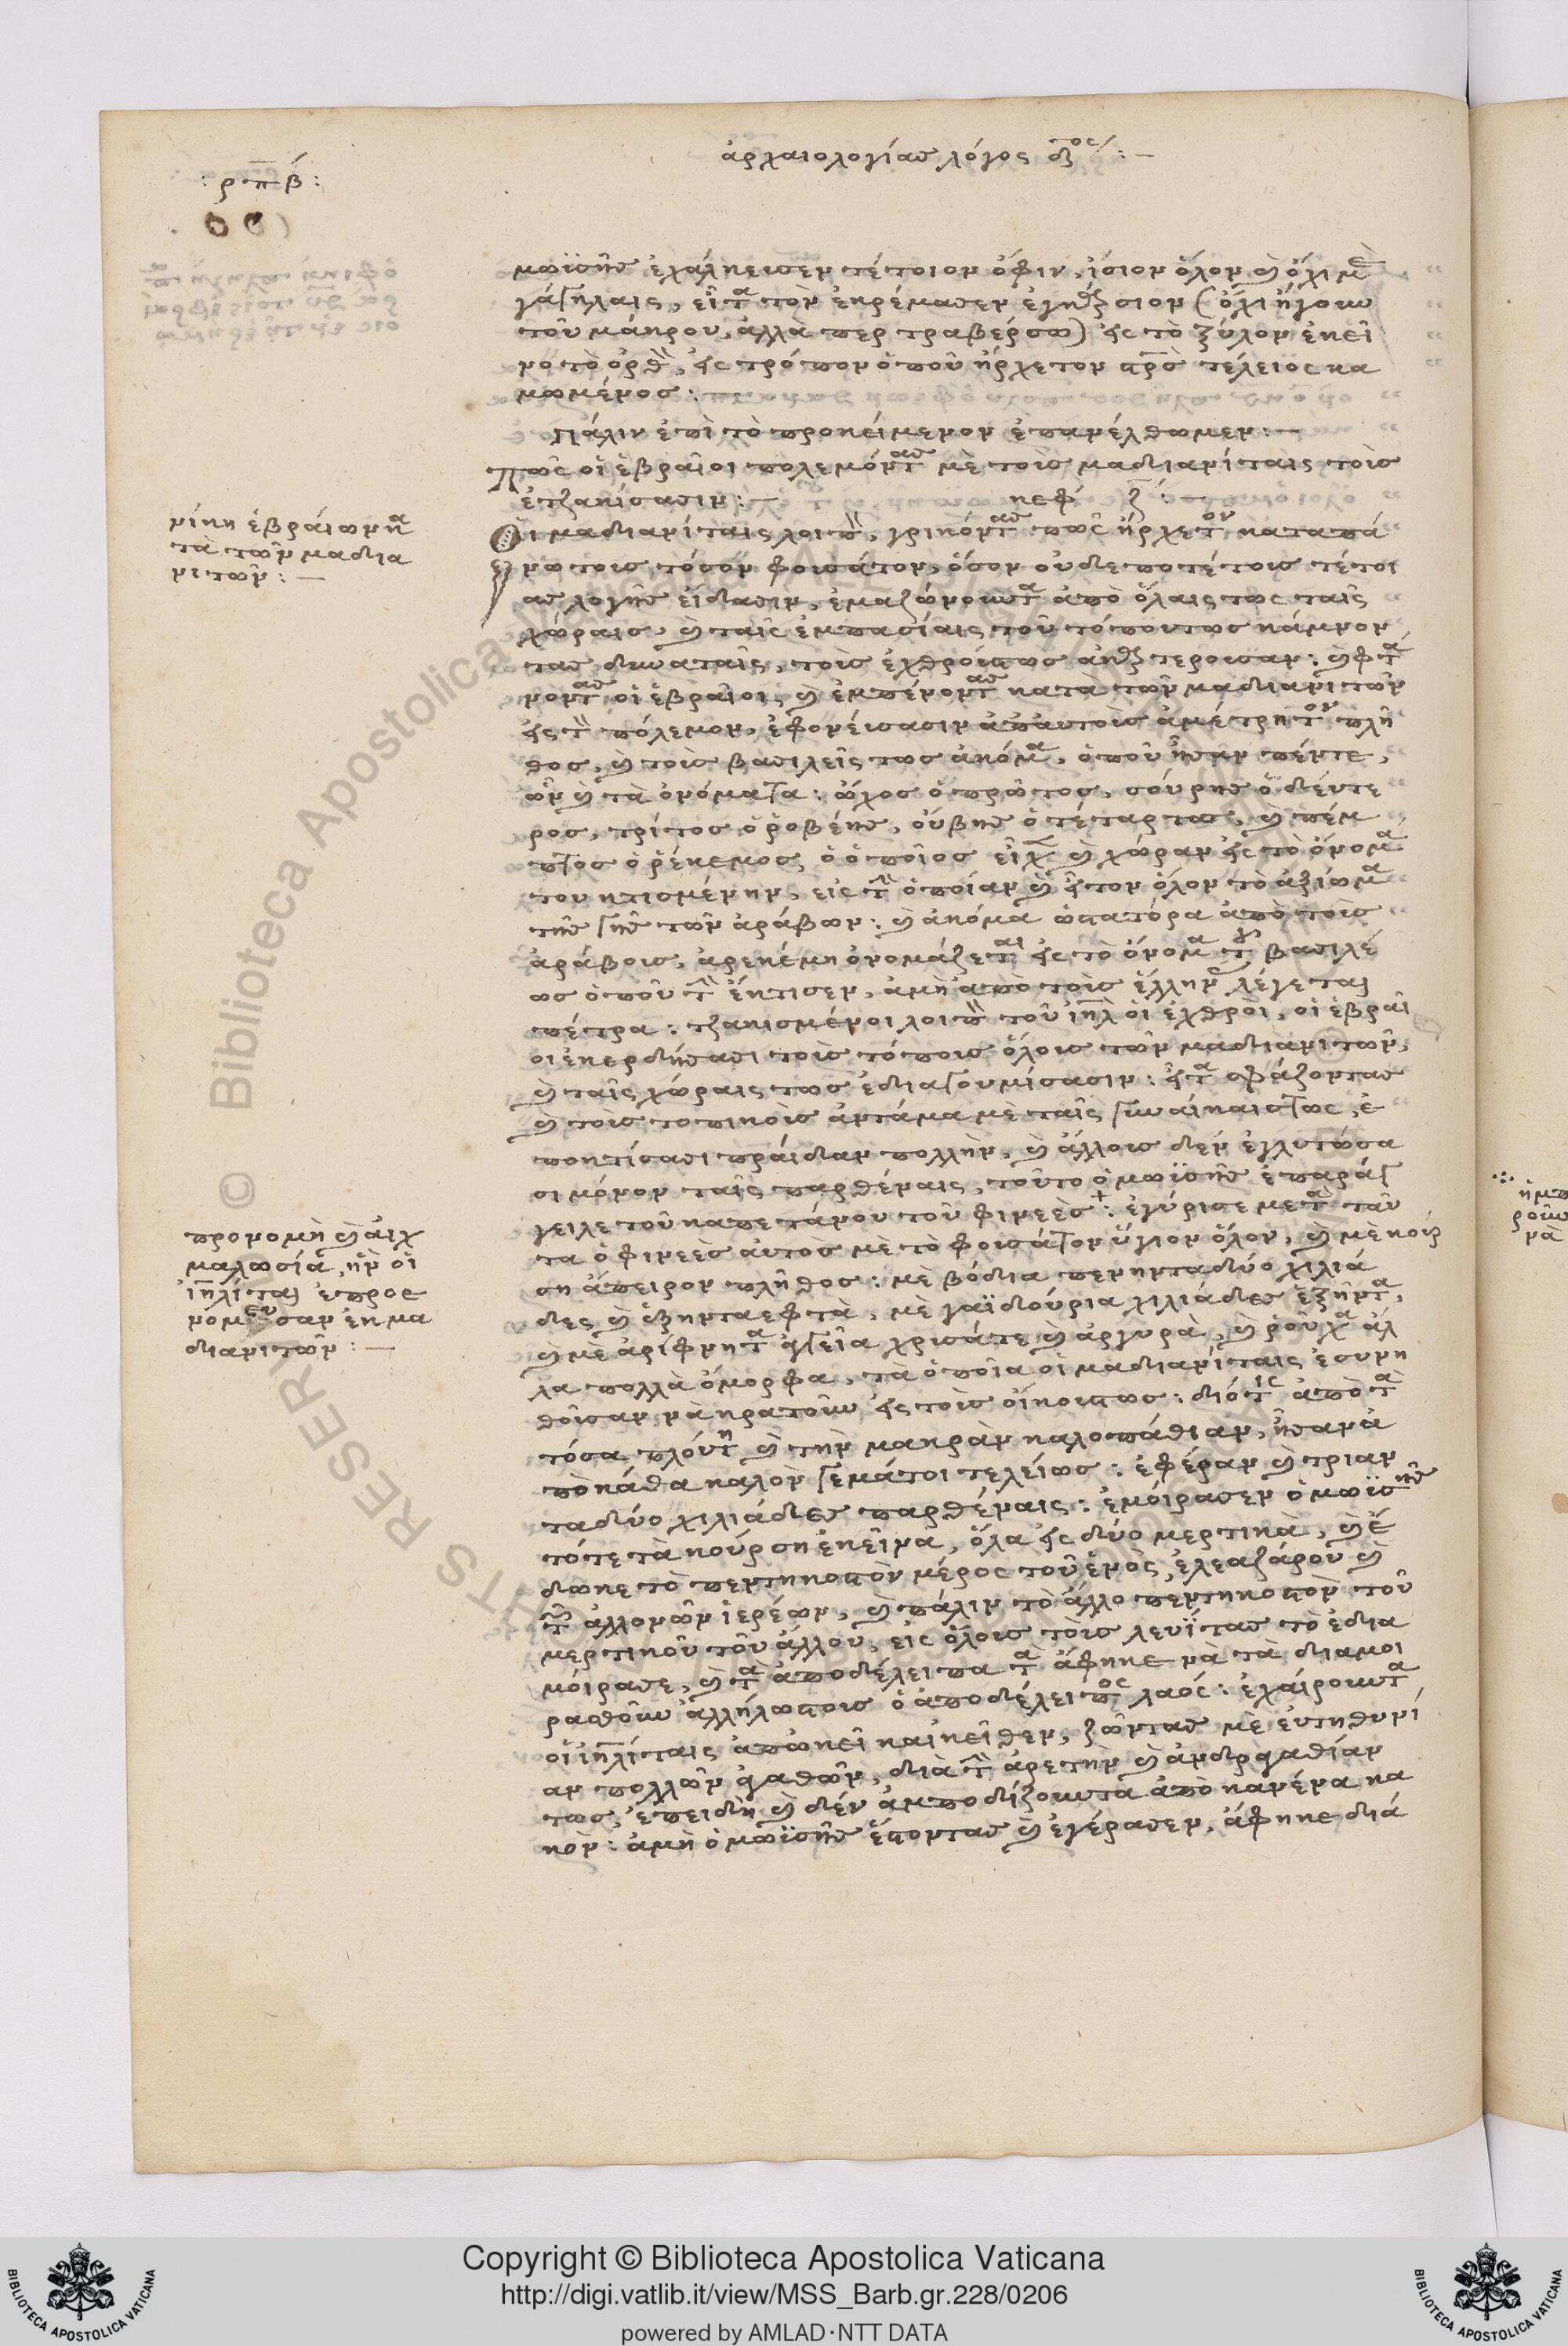 ἀρχαιολογίας λόγος δος :—
: ρπβ :
μωϋσῆς ἐχάλκευσεν τέτοιον ὄφιν, ἴσιον ὅλον καὶ ὄχι μὲ
τοῦ μάκρου, ἀλλὰ περ τραβέρσω) εἰς τὸ ξύλον ἐκεῖ
νο τὸ ὀρθὸν, εἰς τρόπον ὁποῦ ἤρχετον σταυρὸς τέλειος κα
μωμένος :
Πάλιν ἐπὶ τὸ προκείμενον ἐπανέλθωμεν :—
Πῶς οἱ ἑβραῖοι πολεμόντας μὲ τοὺς μαδιανίταις τοὺς
ἐτζακίσασιν :— κεφ ζ :—
νίκη ἑβράιων κατὰ
τὰ τῶν μαδια
νιτῶν :—
Οι μαδιανίταις λοιπὸν, γρικόντας πῶς ἤρχετον καταπά
νω τους τόσον φουσάτον, ὅσον οὐδεποτέ τους τέτοι
ας λογῆς εἴδασιν, ἐμαζώνουντα ἀπὸ ὅλαις τως ταῖς
χώραις, καὶ ταῖς ἐμπασίαις τοῦ τόπου τως κάμνον
κοντας οἱ ἑβραῖοι, καὶ ἐμπένοντας κατὰ τῶν μαδιανιτῶν
εἰς τὸν πόλεμον, ἐφονεύσασιν ἀπ αυτοὺς ἀμέτρητον πλῆ
θος, καὶ τοὺς βασιλεῖς τως ἀκόμα, ὁποῦ ἦσαν πέντε,
ὧν καὶ τὰ ὀνόματα : ὦχος ὁ πρῶτος, σούρης ὁ δεύτε
ρος, τρίτος ὁ ροβέης, οὔβης ὁ τέταρτος, καὶ πέμ
πτος ὁ ρέκεμος, ὁ ὁποῖος εἶχε καὶ χώραν εἰς τὸ ὄνομα
του κτισμένην, εἰς τὴν ὁποίαν καὶ ἦτον ὅλον τὸ ἀξίωμα
τῆς γῆς τῶν ἀράβων : καὶ ἀκόμα ὡς τόρα ἀπὸ τοὺς
ἀράβους, ἀρεκέμη ὀνομάζεται εἰς τὸ ὄνομα τοῦ βασιλέ
ως ὁποῦ τὴν ἔκτισεν, ἀμὴ ἀπὸ τοὺς ἕλληνας λέγεται
πέτρα : τζακισμένοι λοιπὸν τοῦ ἰηλ οἱ ἐχθροὶ, οἱ ἑβραῖ
οι ἐκερδήσασι τοὺς τόπους ὅλους τῶν μαδιανιτῶν,
καὶ ταῖς χώραις τως ἐδιαγουμίσασιν : εἶτα σφάζοντας
καὶ τοὺς τοπικοὺς ἀντάμα μὲ ταῖς γυναίκαις τως, ἐ
ποκτίσασι πράιδαν πολλὴν, καὶ ἄλλους δὲν ἐγλυτώσα
σι μόνον ταῖς παρθέναις, τοῦτο ὁ μωϋσῆς ἐπαράγ
γειλε τοῦ καπετάνου τοῦ φινεὲς : ἐγύρισε μετὰ ταῦ
τα ὁ φινεὲς αὐτὸς μὲ τὸ φουσάτον ὕγιον ὅλον, καὶ μὲ κούρ
ση ἄπειρον πλῆθος : μὲ βόδια πενηνταδύο χιλιά
δες καὶ ἑξηνταεφτὰ, μὲ γαϊδούρια χιλιάδες ἑξῆντα,
λα πολλὰ ὄμορφα, τὰ ὁποῖα οἱ μαδιανίταις ἐσυνη
θοῦσαν νὰ κρατοῦν εἰς τοὺς οἴκους τως : διότις ἀπὸ τὰ
τόσα πλούτη καὶ τὴν μακρὰν καλοπάθιαν, ἦσαν ἀ
πὸ κάθα καλὸν γεμάτοι τελείως : ἐφέραν καὶ τριαν
ταδύο χιλιάδες παρθέναις : ἐμόιρασεν ὁ μωϋσῆς
τότε τὰ κούρση ἐκεῖνα, ὅλα εἰς δύο μερτικὰ, καὶ ἔ
δωκε τὸ πεντηκοστὸν μέρος τοῦ ἑνὸς, ἐλεαζάρου καὶ
τῶν ἀλλονῶν ἱερέων, καὶ πάλιν τὸ ἄλλο πεντηκοστὸν τοῦ
μερτικοῦ τοῦ ἄλλου, εἰς ὅλους τοὺς λευΐτας τὸ ἐδια
μόιρασε, καὶ τὰ ἀποδέλειπα τὰ ἄφηκε νὰ τὰ διαμοι
ρασθοῦν ἀλλήλως τους ὁ ἀποδέλειπος λαός : ἐχάιρουντα
οἱ ἰηλίταις ἀπὠκεῖ καὶ κεῖθεν, ζῶντας μὲ ἐυτηθυνί
αν πολλῶν ἀγαθῶν, διὰ τὴν ἀρετὴν καὶ ἀνδραγαθίαν
τως, ἐπειδὴ καὶ δὲν ἀμποδίζουντα ἀπὸ κανένα κα
κὸν : ἀμὴ ὁ μωϋσῆς ἔστοντας καὶ ἐγέρασεν, ἄφηκε διά
προνομὴ καὶ ἀιχ
μαλωσία, ἣν οἱ
ἰηλίται ἐπροε
νόμευσαν ἐκ μα
διανιτῶν :—
Copyright © Biblioteca Apostolica Vaticana
http://digi.vatlib.it/view/MSS_Barb.gr.228/0206
powered by AMLAD·NTT DATA
BIBLIOTECA APOSTOLICA VATICANA
BIBLIOTECA APOSTOLICA VATICANA